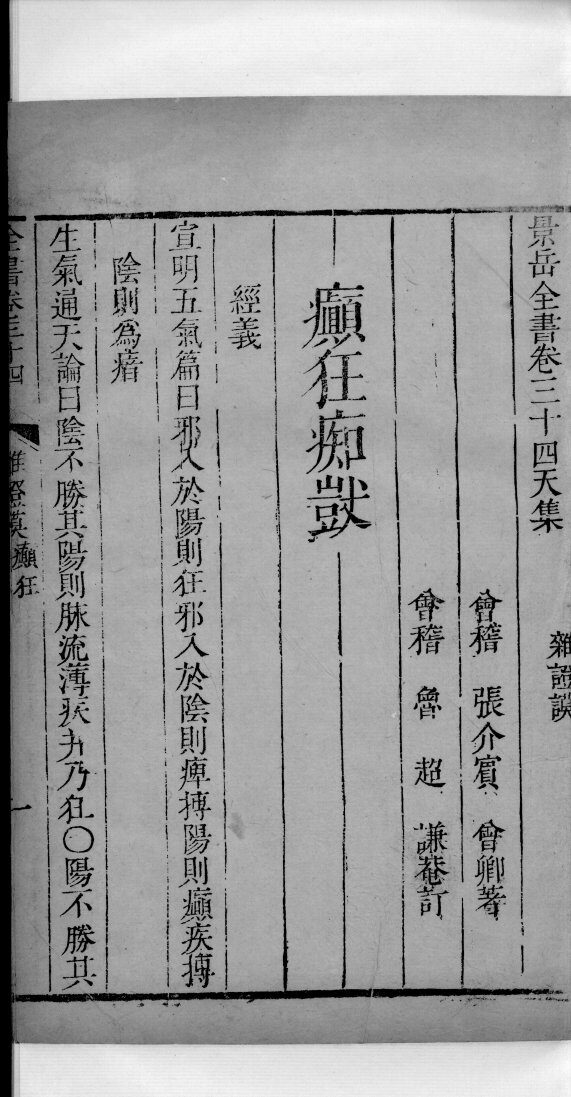 景岳全書卷三十四天集
雜證謨
會稽 張介賓 會卿著
會稽 魯 超 謙菴訂
癲狂痴獃
經義
宣明五氣篇曰邪入於陽則狂邪入於陰則痺搏陽則癲疾搏
陰則為瘖
生氣通天論曰陰不勝其陽則脉流薄疾并乃狂〇陽不勝其
全書卷三十四 雜證謨 癲狂 一